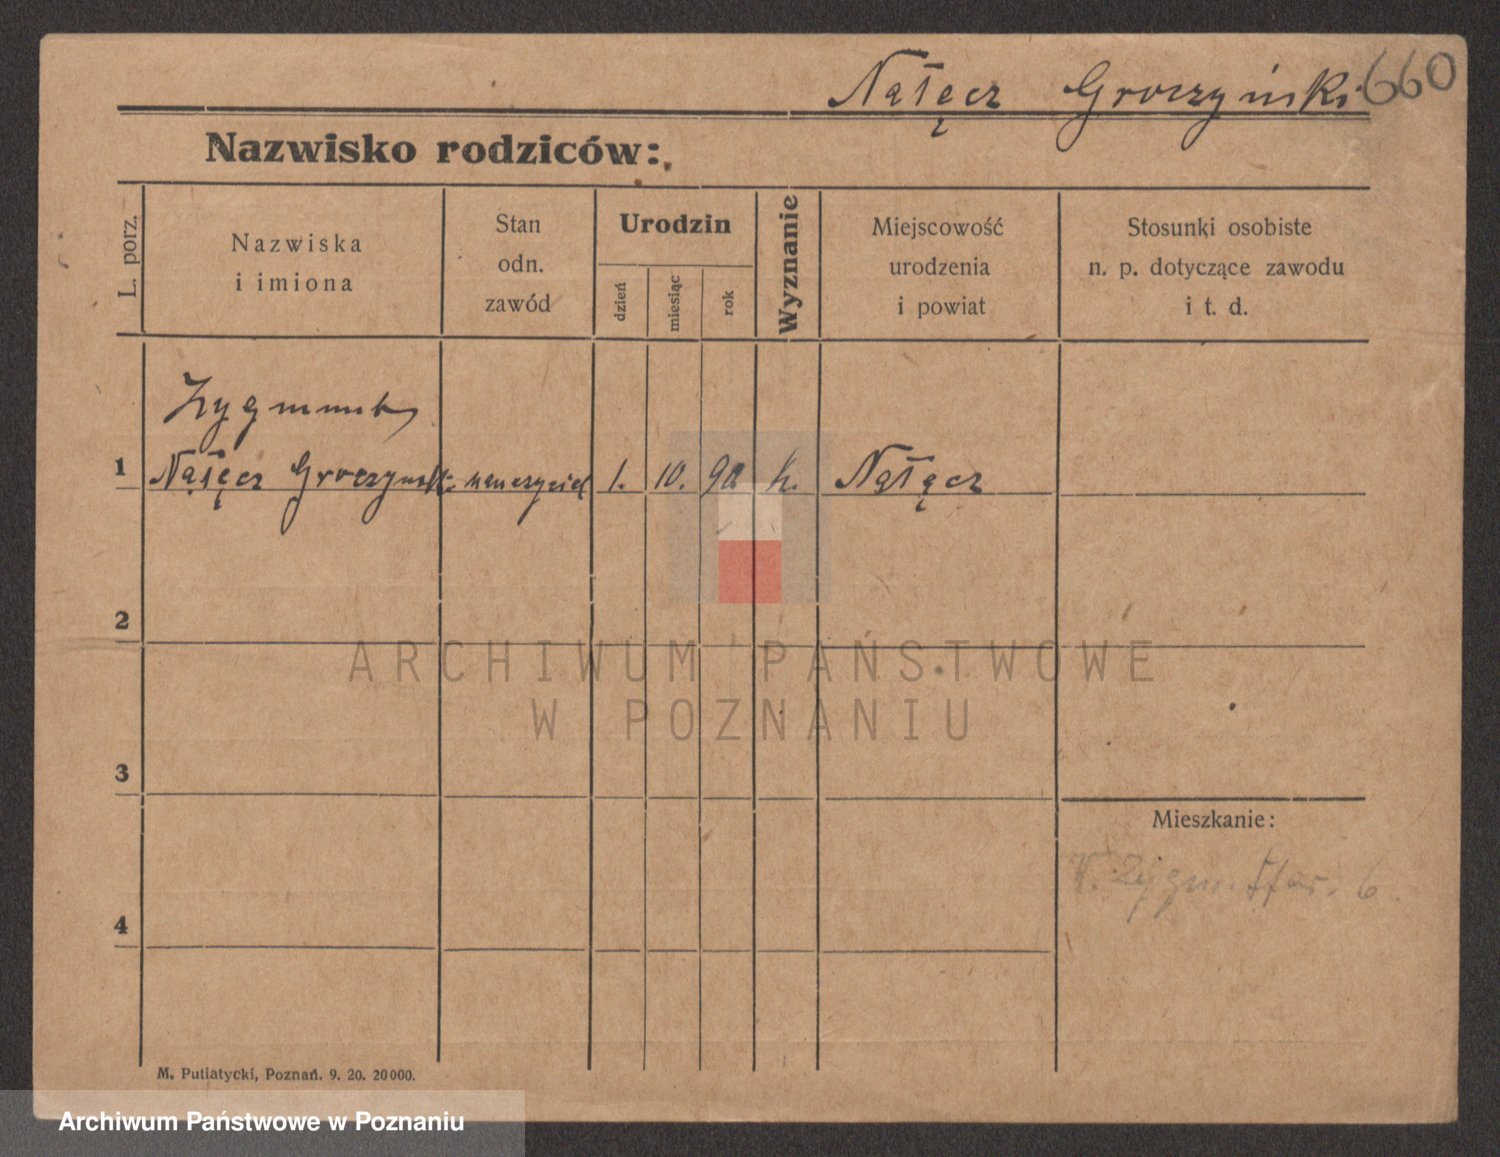 Nałęcz Groczyński 660
Nazwisko rodziców:
L. porz.
Nazwiska
i imiona
Stan
odn.
zawód
Urodzin
dzień
miesiąc
rok
Wyznanie
Miejscowość
urodzenia
i powiat
Stosunki osobiste
n. p. dotyczące zawodu
i t. d.
Zygmunt
1 Nałęcz Groczyński nauczyciel 1. 10. 90 k. Nałęcz
2
3
4
Mieszkanie:
Zygm. 6.
M. Putiatycki, Poznań. 9. 20. 20000.
ARCHIWUM PAŃSTWOWE
W POZNANIU
Archiwum Państwowe w Poznaniu